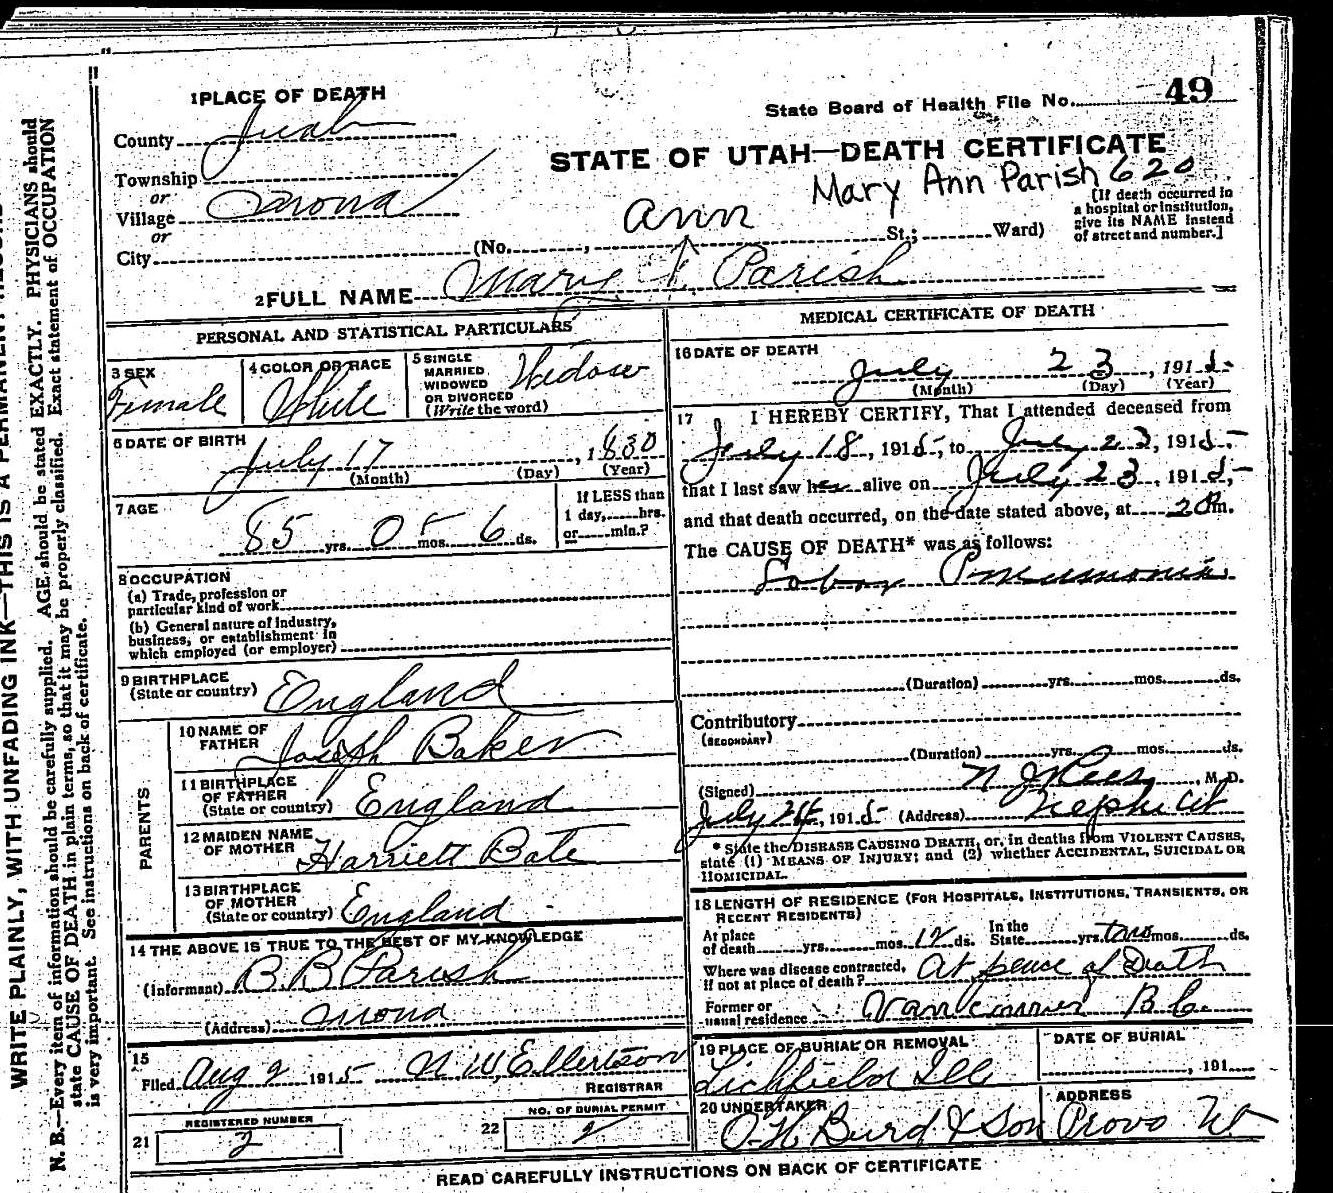 1 PLACE OF DEATH
State Board of Health File No. 49
County Juab
STATE OF UTAH—DEATH CERTIFICATE
Township
Mary Ann Parish 620
or
Village Mona
[If death occurred in a hospital or institution, give its NAME instead of street and number.]
or
Ann
City (No. , St.; Ward)
2 FULL NAME Mary Parish
PERSONAL AND STATISTICAL PARTICULARS
3 SEX Female
4 COLOR OR RACE White
5 SINGLE MARRIED WIDOWED OR DIVORCED (Write the word) Widow
6 DATE OF BIRTH July 17, 1830
(Month) (Day) (Year)
7 AGE 85 yrs. 0 mos. 6 ds.
If LESS than 1 day, hrs. or min.?
8 OCCUPATION
(a) Trade, profession or particular kind of work
(b) General nature of industry, business, or establishment in which employed (or employer)
9 BIRTHPLACE (State or country) England
PARENTS
10 NAME OF FATHER Joseph Baker
11 BIRTHPLACE OF FATHER (State or country) England
12 MAIDEN NAME OF MOTHER Harriett Bate
13 BIRTHPLACE OF MOTHER (State or country) England
14 THE ABOVE IS TRUE TO THE BEST OF MY KNOWLEDGE
(Informant) B. B. Parish
(Address) Mona
15
Filed Aug 2 1915 N. W. Ellertson
REGISTRAR
21 REGISTERED NUMBER 2
22 NO. OF BURIAL PERMIT 2
MEDICAL CERTIFICATE OF DEATH
16 DATE OF DEATH
July 23, 1915
(Month) (Day) (Year)
17 I HEREBY CERTIFY, That I attended deceased from
July 18, 1915, to July 23, 1915
that I last saw her alive on July 23, 1915,
and that death occurred, on the date stated above, at m.
The CAUSE OF DEATH* was as follows:
Lobar Pneumonia
(Duration) yrs. mos. ds.
Contributory
(SECONDARY)
(Duration) yrs. mos. ds.
(Signed) N J Rees, M. D.
July 24, 1915 (Address) Nephi Ut
* State the DISEASE CAUSING DEATH, or, in deaths from VIOLENT CAUSES, state (1) MEANS OF INJURY; and (2) whether ACCIDENTAL, SUICIDAL OR HOMICIDAL.
18 LENGTH OF RESIDENCE (FOR HOSPITALS, INSTITUTIONS, TRANSIENTS, OR RECENT RESIDENTS)
At place of death yrs. mos. 12 ds. In the State yrs. two mos. ds.
Where was disease contracted, if not at place of death? At place of Death
Former or usual residence Vancouver B. C.
19 PLACE OF BURIAL OR REMOVAL Lichfield Ill
DATE OF BURIAL , 191
20 UNDERTAKER O H Burd & Son
ADDRESS Provo Ut
READ CAREFULLY INSTRUCTIONS ON BACK OF CERTIFICATE
WRITE PLAINLY, WITH UNFADING INK—THIS IS A PERMANENT
N. B.—Every item of information should be carefully supplied. AGE should be stated EXACTLY. PHYSICIANS should
state CAUSE OF DEATH in plain terms, so that it may be properly classified. Exact statement of OCCUPATION
is very important. See instructions on back of certificate.